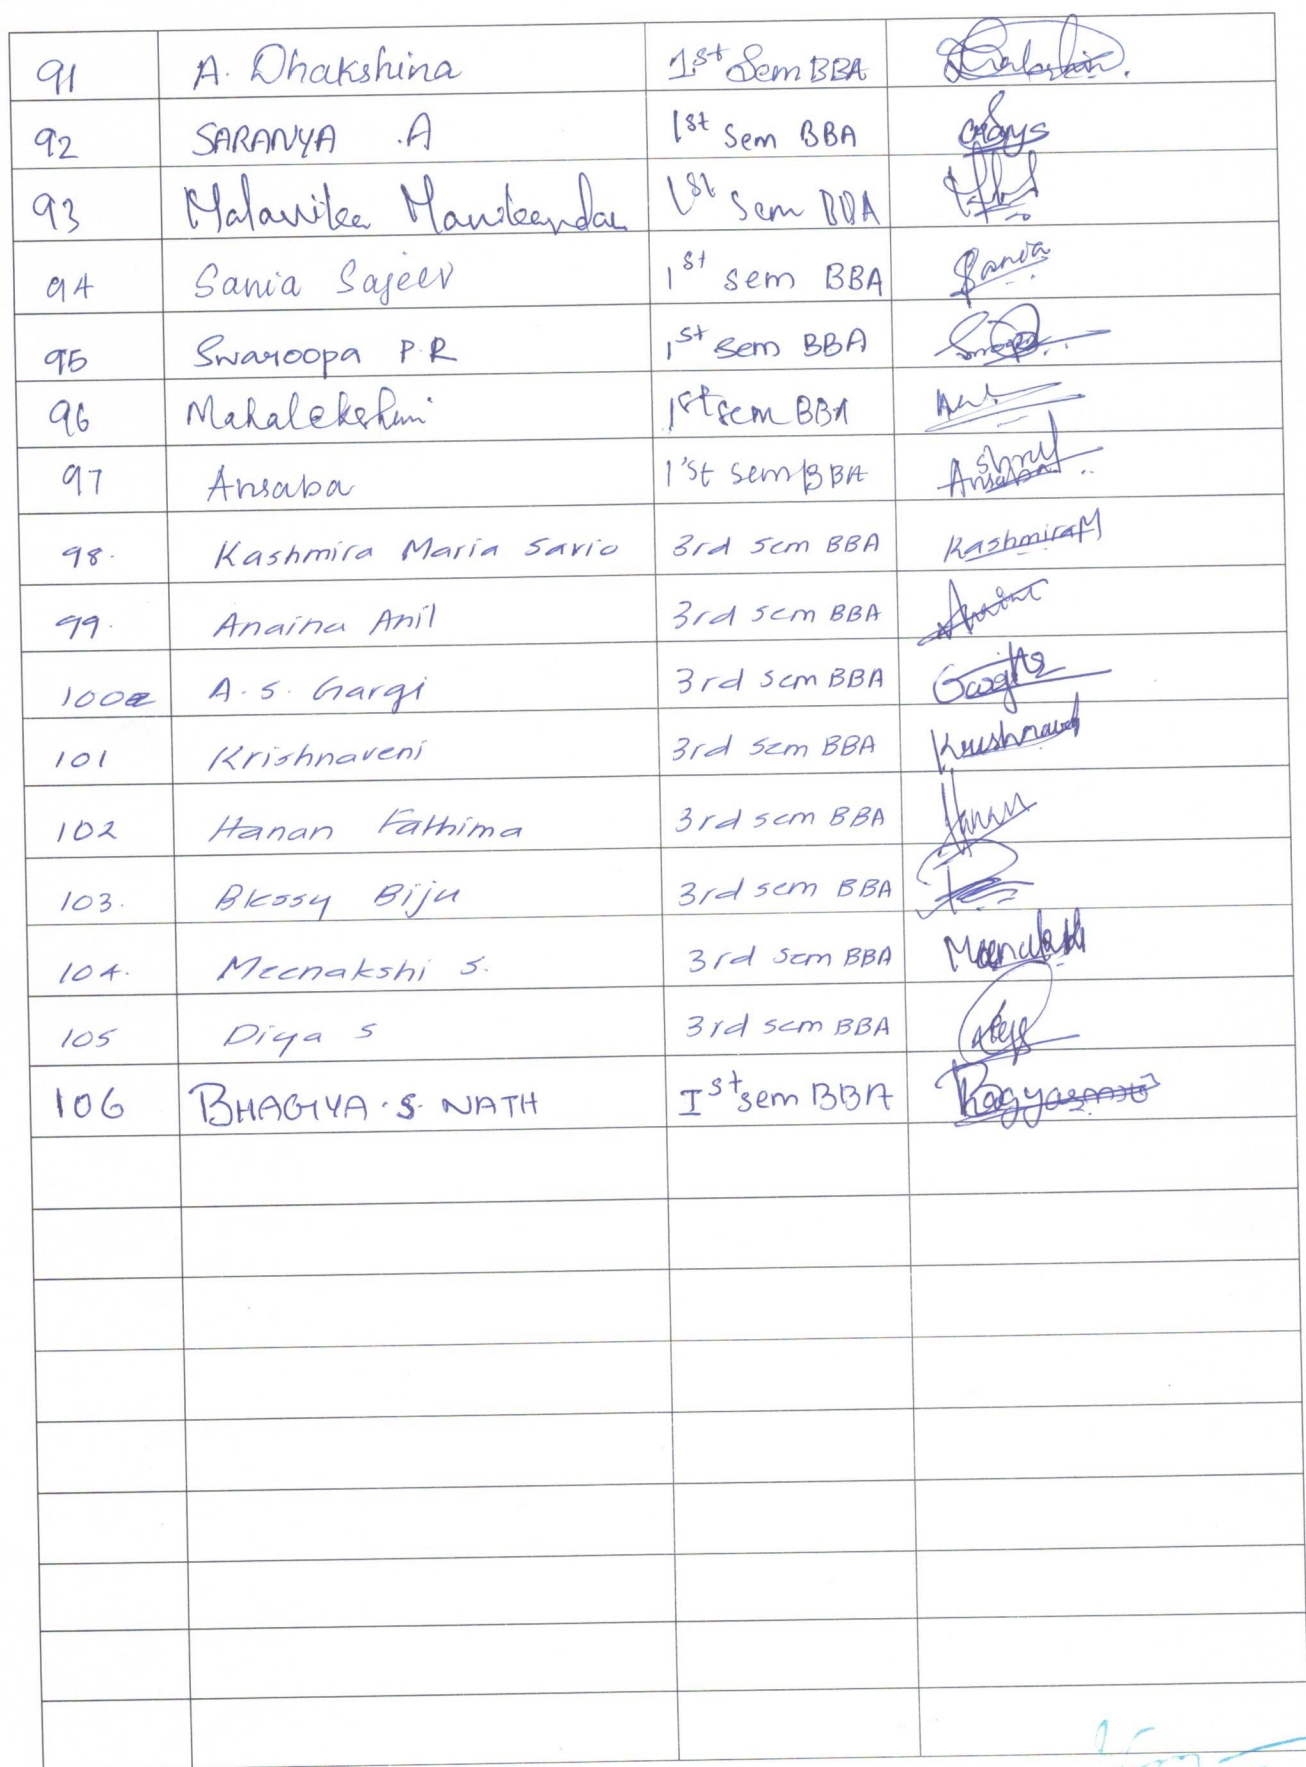 91 A. Dhakshina 1st Sem BBA
92 SARANYA .A 1st Sem BBA
93 Malavika Manikandan 1st Sem BBA
94 Sania Sajeev 1st sem BBA Sania
95 Swaroopa P.R 1st sem BBA
96 Mahalekshmi 1st sem BBA
97 Ansaba 1'st sem BBA Ansaba
98. Kashmira Maria Savio 3rd sem BBA KashmiraM
99. Anaina Anil 3rd sem BBA
100 A.S. Gargi 3rd sem BBA
101 Krishnaveni 3rd sem BBA
102 Hanan Fathima 3rd sem BBA Hanan
103. Blessy Biju 3rd sem BBA
104. Meenakshi S. 3rd sem BBA Meenakshi
105 Diya S 3rd sem BBA
106 BHAGIYA.S. NATH Ist sem BBA